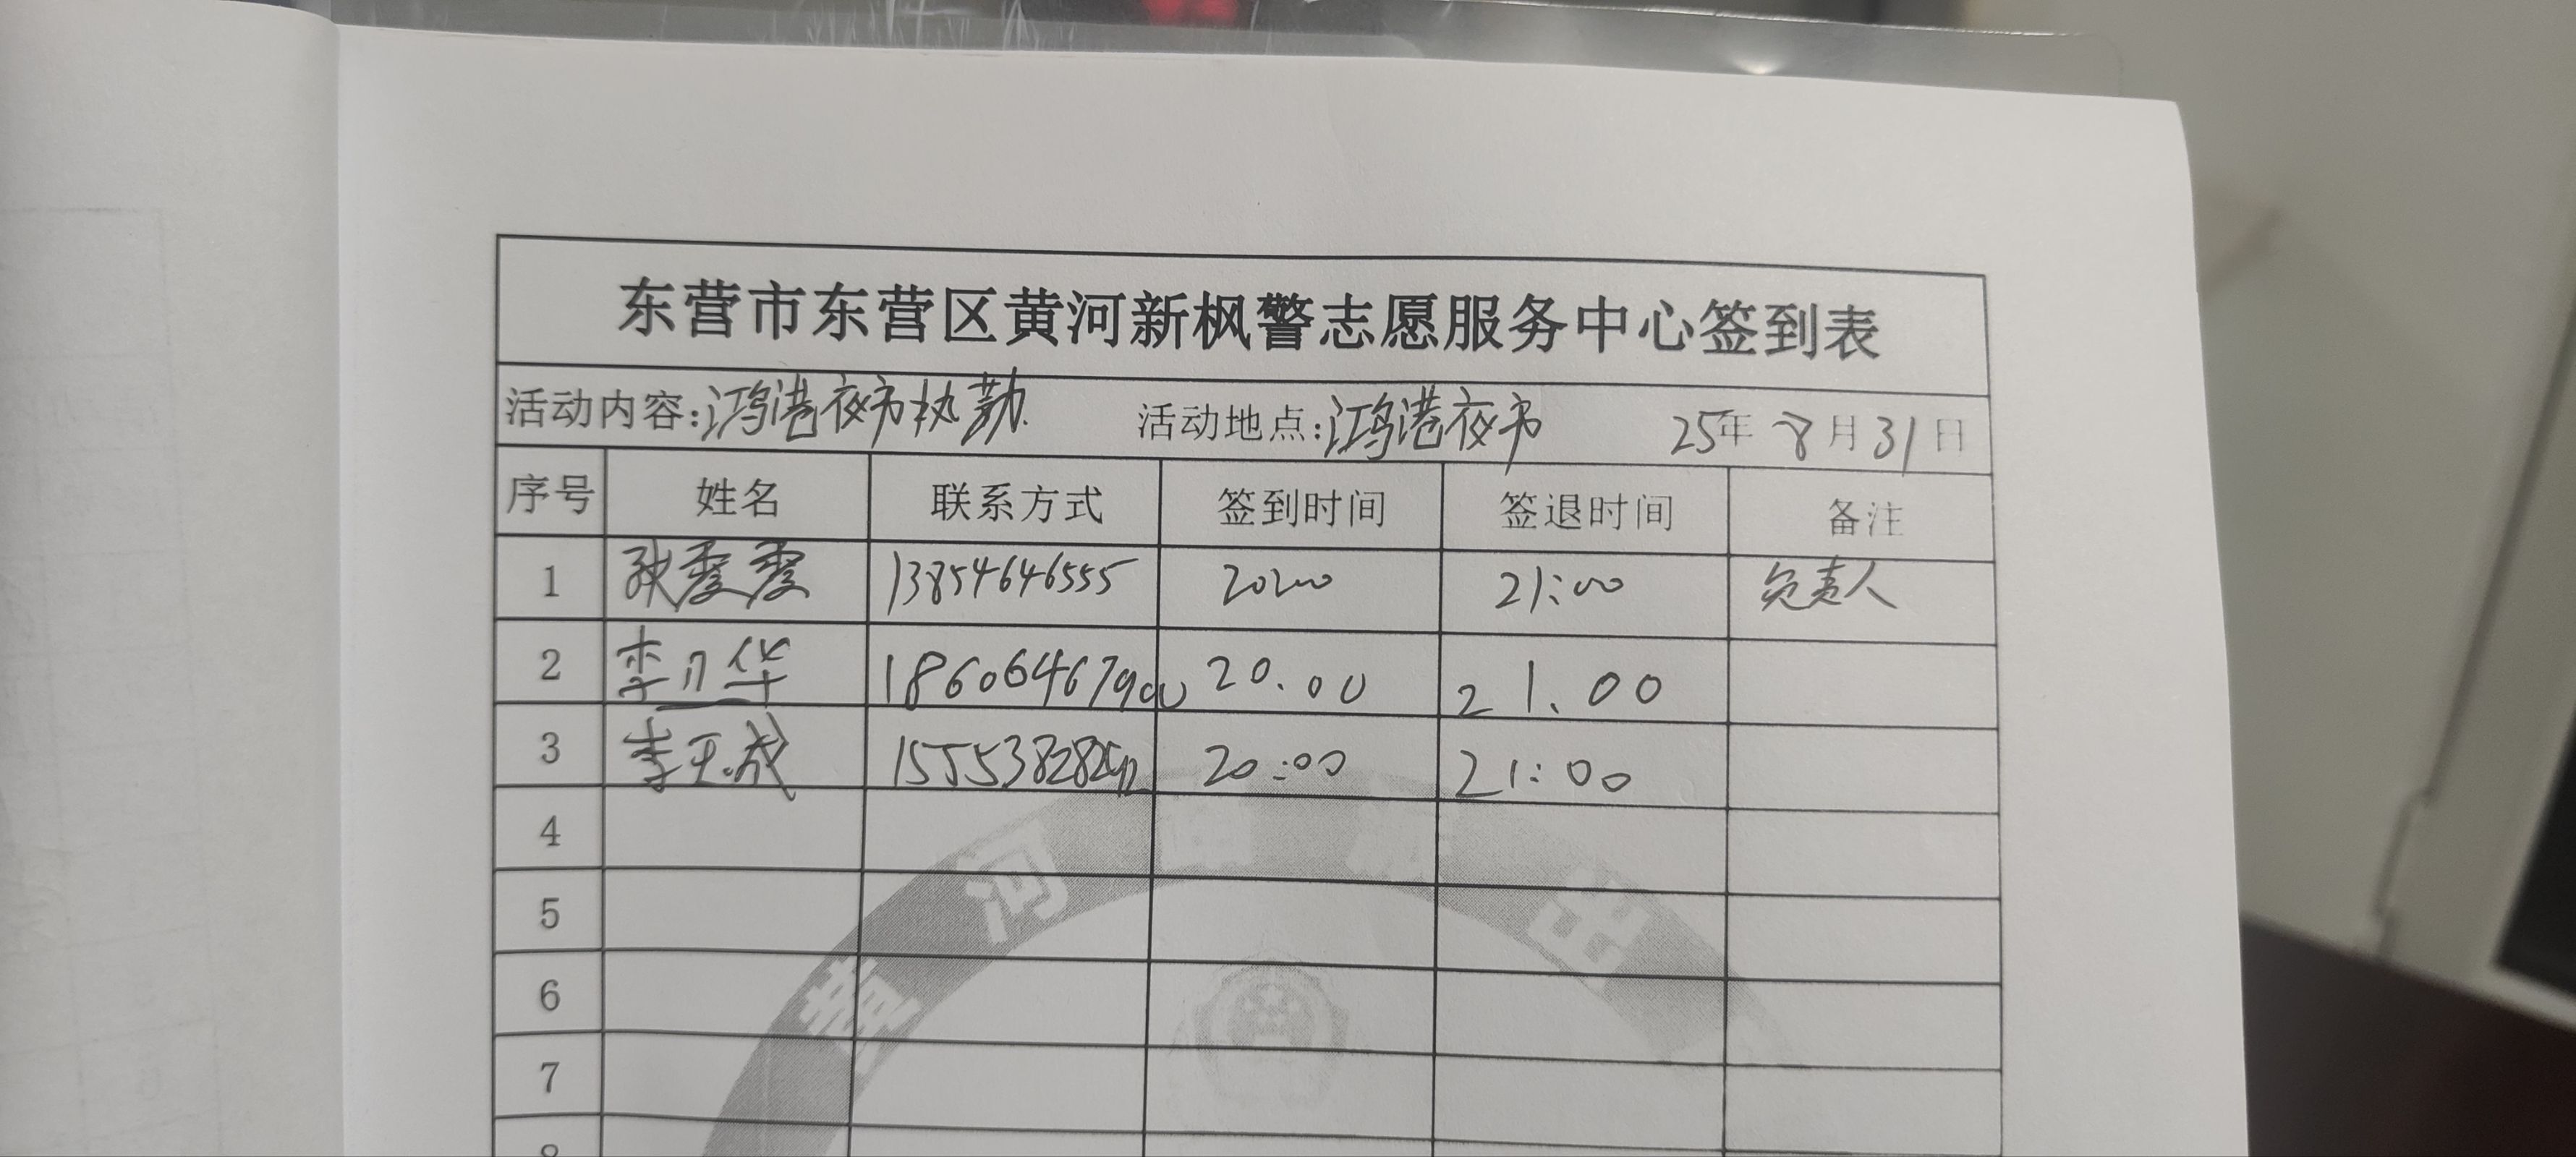 东营市东营区黄河新枫警志愿服务中心签到表
活动内容:鸿港夜市执勤 活动地点:鸿港夜市 25年 8月31日
序号 姓名 联系方式 签到时间 签退时间 备注
1 13854646555 20:00 21:00 负责人
2 李月华 18606467900 20.00 21.00
3 李玉成 20:00 21:00
4
5
6
7
8
黄河 出